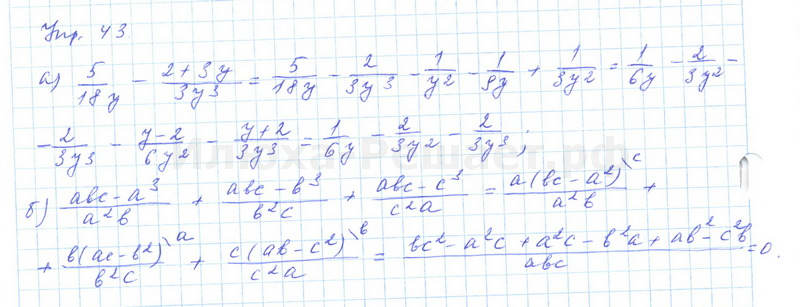 Упр. 43
а) 5/18y - (2+3y)/3y³ = 5/18y - 2/3y³ - 1/y² - 1/9y + 1/3y² = 1/6y - 2/3y² -
- 2/3y³ - (y-2)/6y² - (y+2)/3y³ = 1/6y - 2/3y² - 2/3y³;
б) (abc-a³)/a²b + (abc-b³)/b²c + (abc-c³)/c²a = a(bc-a²)\c/a²b +
+ b(ac-b²)\a/b²c + c(ab-c²)\b/c²a = (bc²-a²c+a²c-b²a+ab²-c²b)/abc = 0.